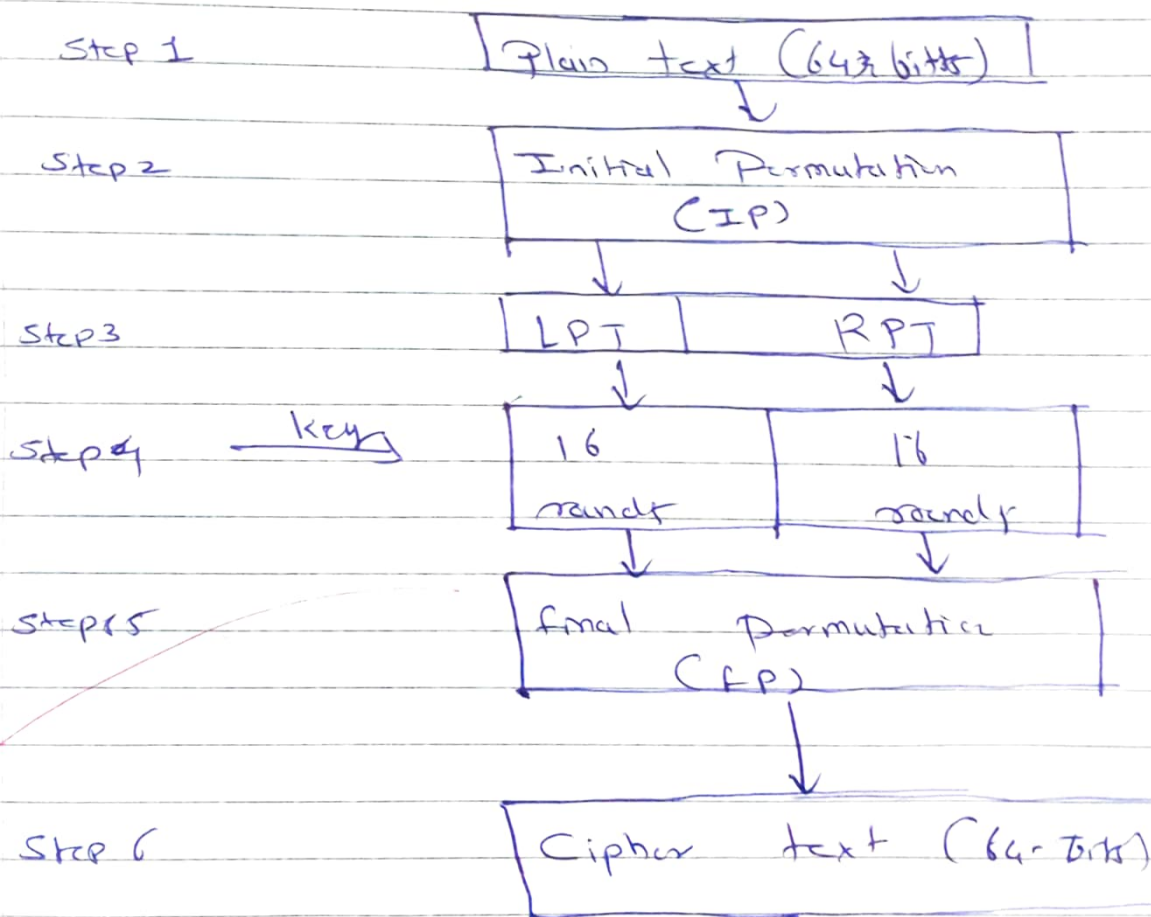 Step 1
Plain text (64 bitts)
Step 2
Initial Permutation
(IP)
Step 3
LPT
RPT
Step 4
key
16
16
rounds
rounds
Step 5
final permutation
(FP)
Step 6
Cipher text (64-bits)